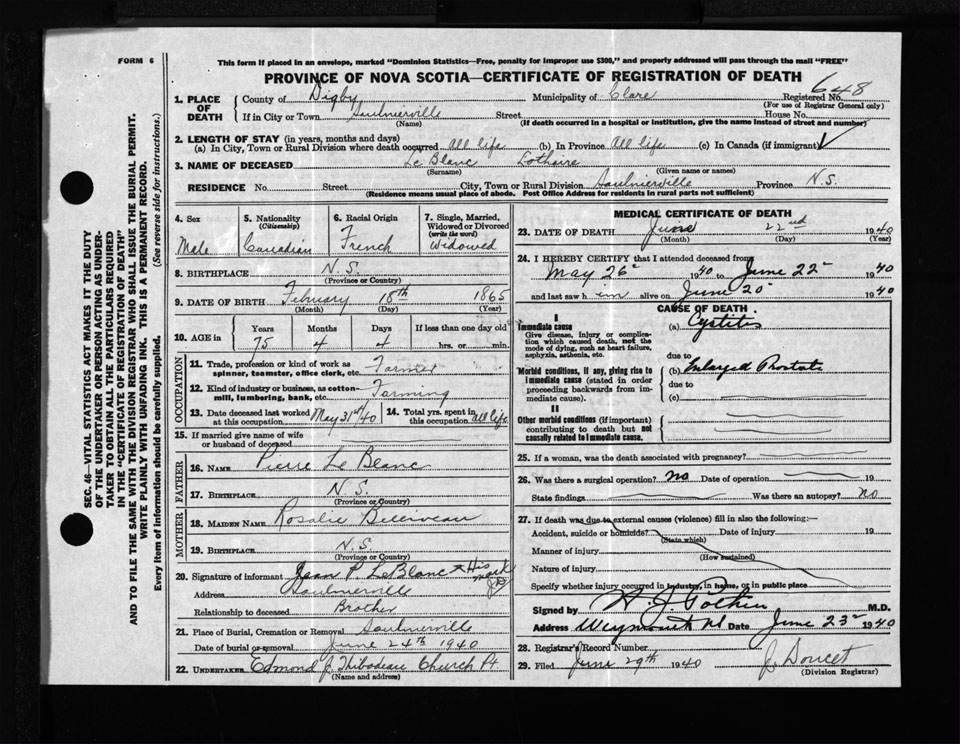 FORM 6
This form if placed in an envelope, marked "Dominion Statistics—Free, penalty for improper use $300," and properly addressed will pass through the mail "FREE"
PROVINCE OF NOVA SCOTIA—CERTIFICATE OF REGISTRATION OF DEATH
648
1. PLACE OF DEATH County of Digby Municipality of Clare Registered No.
(For use of Registrar General only)
If in City or Town Saulnierville Street House No.
(Name) (If death occurred in a hospital or institution, give the name instead of street and number)
2. LENGTH OF STAY (in years, months and days)
(a) In City, Town or Rural Division where death occurred All life (b) In Province All life (c) In Canada (if immigrant)
3. NAME OF DECEASED Le Blanc Lothaire
(Surname) (Given name or names)
RESIDENCE No. Street City, Town or Rural Division Saulnierville Province N.S.
(Residence means usual place of abode. Post Office Address for residents in rural parts not sufficient)
4. Sex Male
5. Nationality (Citizenship) Canadian
6. Racial Origin French
7. Single, Married, Widowed or Divorced (write the word) Widowed
8. BIRTHPLACE N.S.
(Province or Country)
9. DATE OF BIRTH February 18th 1865
(Month) (Day) (Year)
10. AGE in Years Months Days If less than one day old
75 4 4 hrs. or min.
OCCUPATION
11. Trade, profession or kind of work as spinner, teamster, office clerk, etc. Farmer
12. Kind of industry or business, as cotton-mill, lumbering, bank, etc. Farming
13. Date deceased last worked at this occupation May 31st/40
14. Total yrs. spent in this occupation all life
15. If married give name of wife or husband of deceased
FATHER
16. NAME Pierre Le Blanc
17. BIRTHPLACE N.S.
(Province or Country)
MOTHER
18. MAIDEN NAME Rosalie Belliveau
19. BIRTHPLACE N.S.
(Province or Country)
20. Signature of informant Jean P. LeBlanc X His mark
Address Saulnierville
Relationship to deceased Brother
21. Place of Burial, Cremation or Removal Saulnierville
Date of burial or removal June 24th 1940
22. UNDERTAKER Edmond J. Thibodeau Church Pt.
(Name and address)
MEDICAL CERTIFICATE OF DEATH
23. DATE OF DEATH June 22nd 1940
(Month) (Day) (Year)
24. I HEREBY CERTIFY that I attended deceased from
May 26 1940 to June 22 1940
and last saw him alive on June 20 1940
CAUSE OF DEATH
I
Immediate cause (a) Cystitis
Give disease, injury or complication which caused death, not the mode of dying, such as heart failure, asphyxia, asthenia, etc.
due to
Morbid conditions, if any, giving rise to immediate cause (stated in order proceeding backwards from immediate cause). (b) Enlarged Prostate
due to
(c)
II
Other morbid conditions (if important) contributing to death but not causally related to immediate cause.
25. If a woman, was the death associated with pregnancy?
26. Was there a surgical operation? no Date of operation 19
State findings Was there an autopsy? no
27. If death was due to external causes (violence) fill in also the following:—
Accident, suicide or homicide? Date of injury 19
(State which)
Manner of injury
(How sustained)
Nature of injury
Specify whether injury occurred in industry, in home, or in public place
Signed by M.D.
Address Weymouth NS Date June 23 1940
28. Registrar's Record Number
29. Filed June 29th 1940 J. Doucet
(Division Registrar)
SEC. 46—VITAL STATISTICS ACT MAKES IT THE DUTY
OF THE UNDERTAKER OR PERSON ACTING AS UNDER-
TAKER TO OBTAIN ALL THE PARTICULARS REQUIRED
IN THE "CERTIFICATE OF REGISTRATION OF DEATH"
AND TO FILE THE SAME WITH THE DIVISION REGISTRAR WHO SHALL ISSUE THE BURIAL PERMIT.
WRITE PLAINLY WITH UNFADING INK. THIS IS A PERMANENT RECORD.
Every item of information should be carefully supplied. (See reverse side for instructions.)